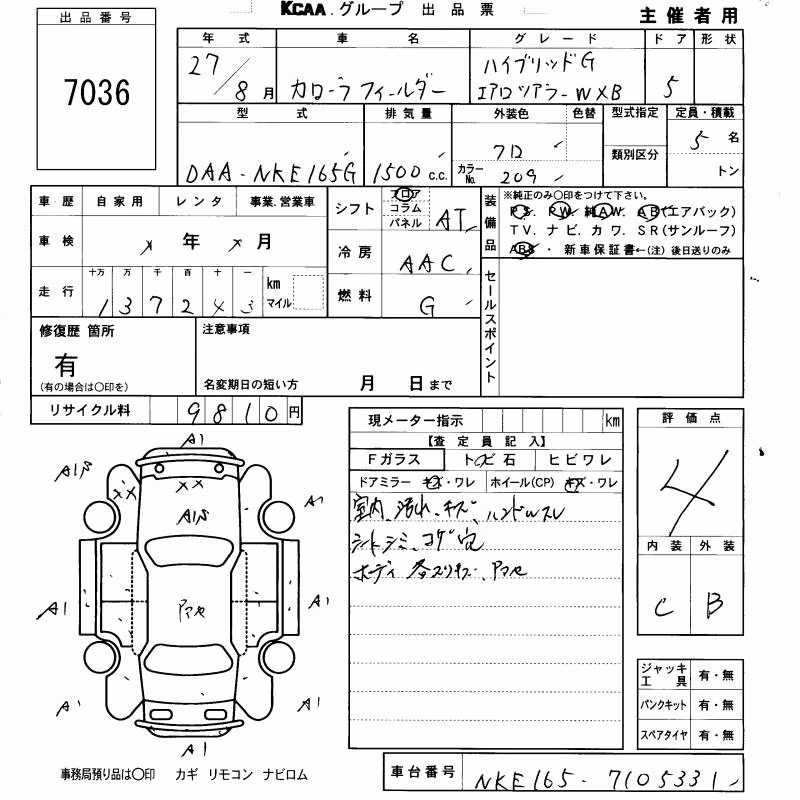 KCAA.グループ 出品票
主催者用
出品番号
7036
年式 車名 グレード ドア 形状
27/8月 カローラフィールダー ハイブリッドG
エアロツアラーW×B 5
型式 排気量 外装色 色替 型式指定 定員・積載
DAA-NKE165G 1500 c.c. クロ カラーNo. 209 類別区分 5名
トン
車歴 自家用 レンタ 事業.営業車
車検 年 月
走行 十万 万 千 百 十 一 km マイル
137243
シフト フロア コラム パネル AT
冷房 AAC
燃料 G
装備品
※純正のみ〇印をつけて下さい。
P.S. P.W. 純A.W. A.B(エアバック)
T V. ナビ. カワ. S R (サンルーフ)
ABS ・ 新車保証書←(注) 後日送りのみ
セールスポイント
修復歴 箇所
有
(有の場合は〇印を)
注意事項
名変期日の短い方 月 日まで
リサイクル料 9810円
現メーター指示 km
【査定員記入】
Fガラス トビ石 ヒビワレ
ドアミラー キズ・ワレ ホイール(CP) キズ・ワレ
室内、汚れ、キズ、ハンドルスレ
シートシミ、コゲ穴
ボディ 各スリキズ、アマセ
評価点
4
内装 外装
C B
A1
A1S
XX
XX
A1S
A1
A1
アマセ
A1
A1
A1
A1
A1
ジャッキ工具 有・無
パンクキット 有・無
スペアタイヤ 有・無
事務局預り品は〇印 カギ リモコン ナビロム
車台番号 NKE165-7105331